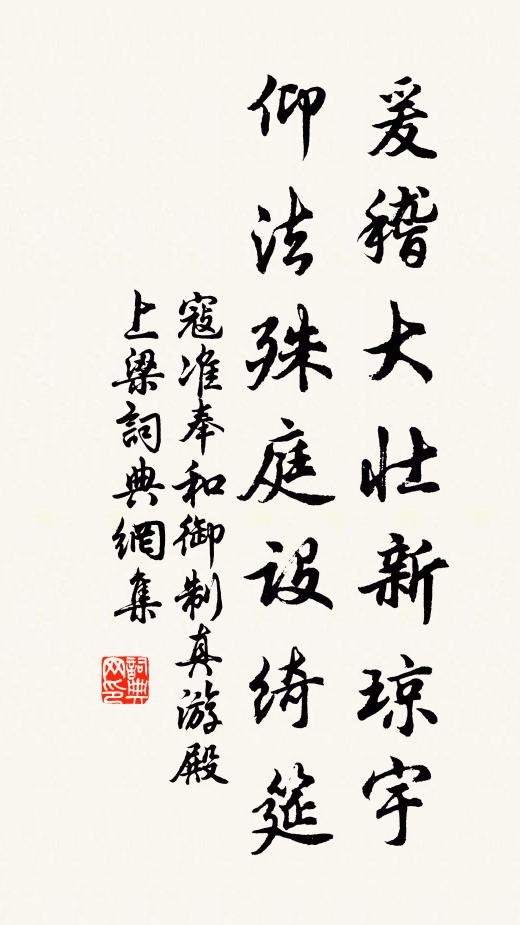 爰稽大壮新琼宇
仰法殊庭设绮筵
寇准奉和御制真游殿
上梁詞典網集
詞典網印